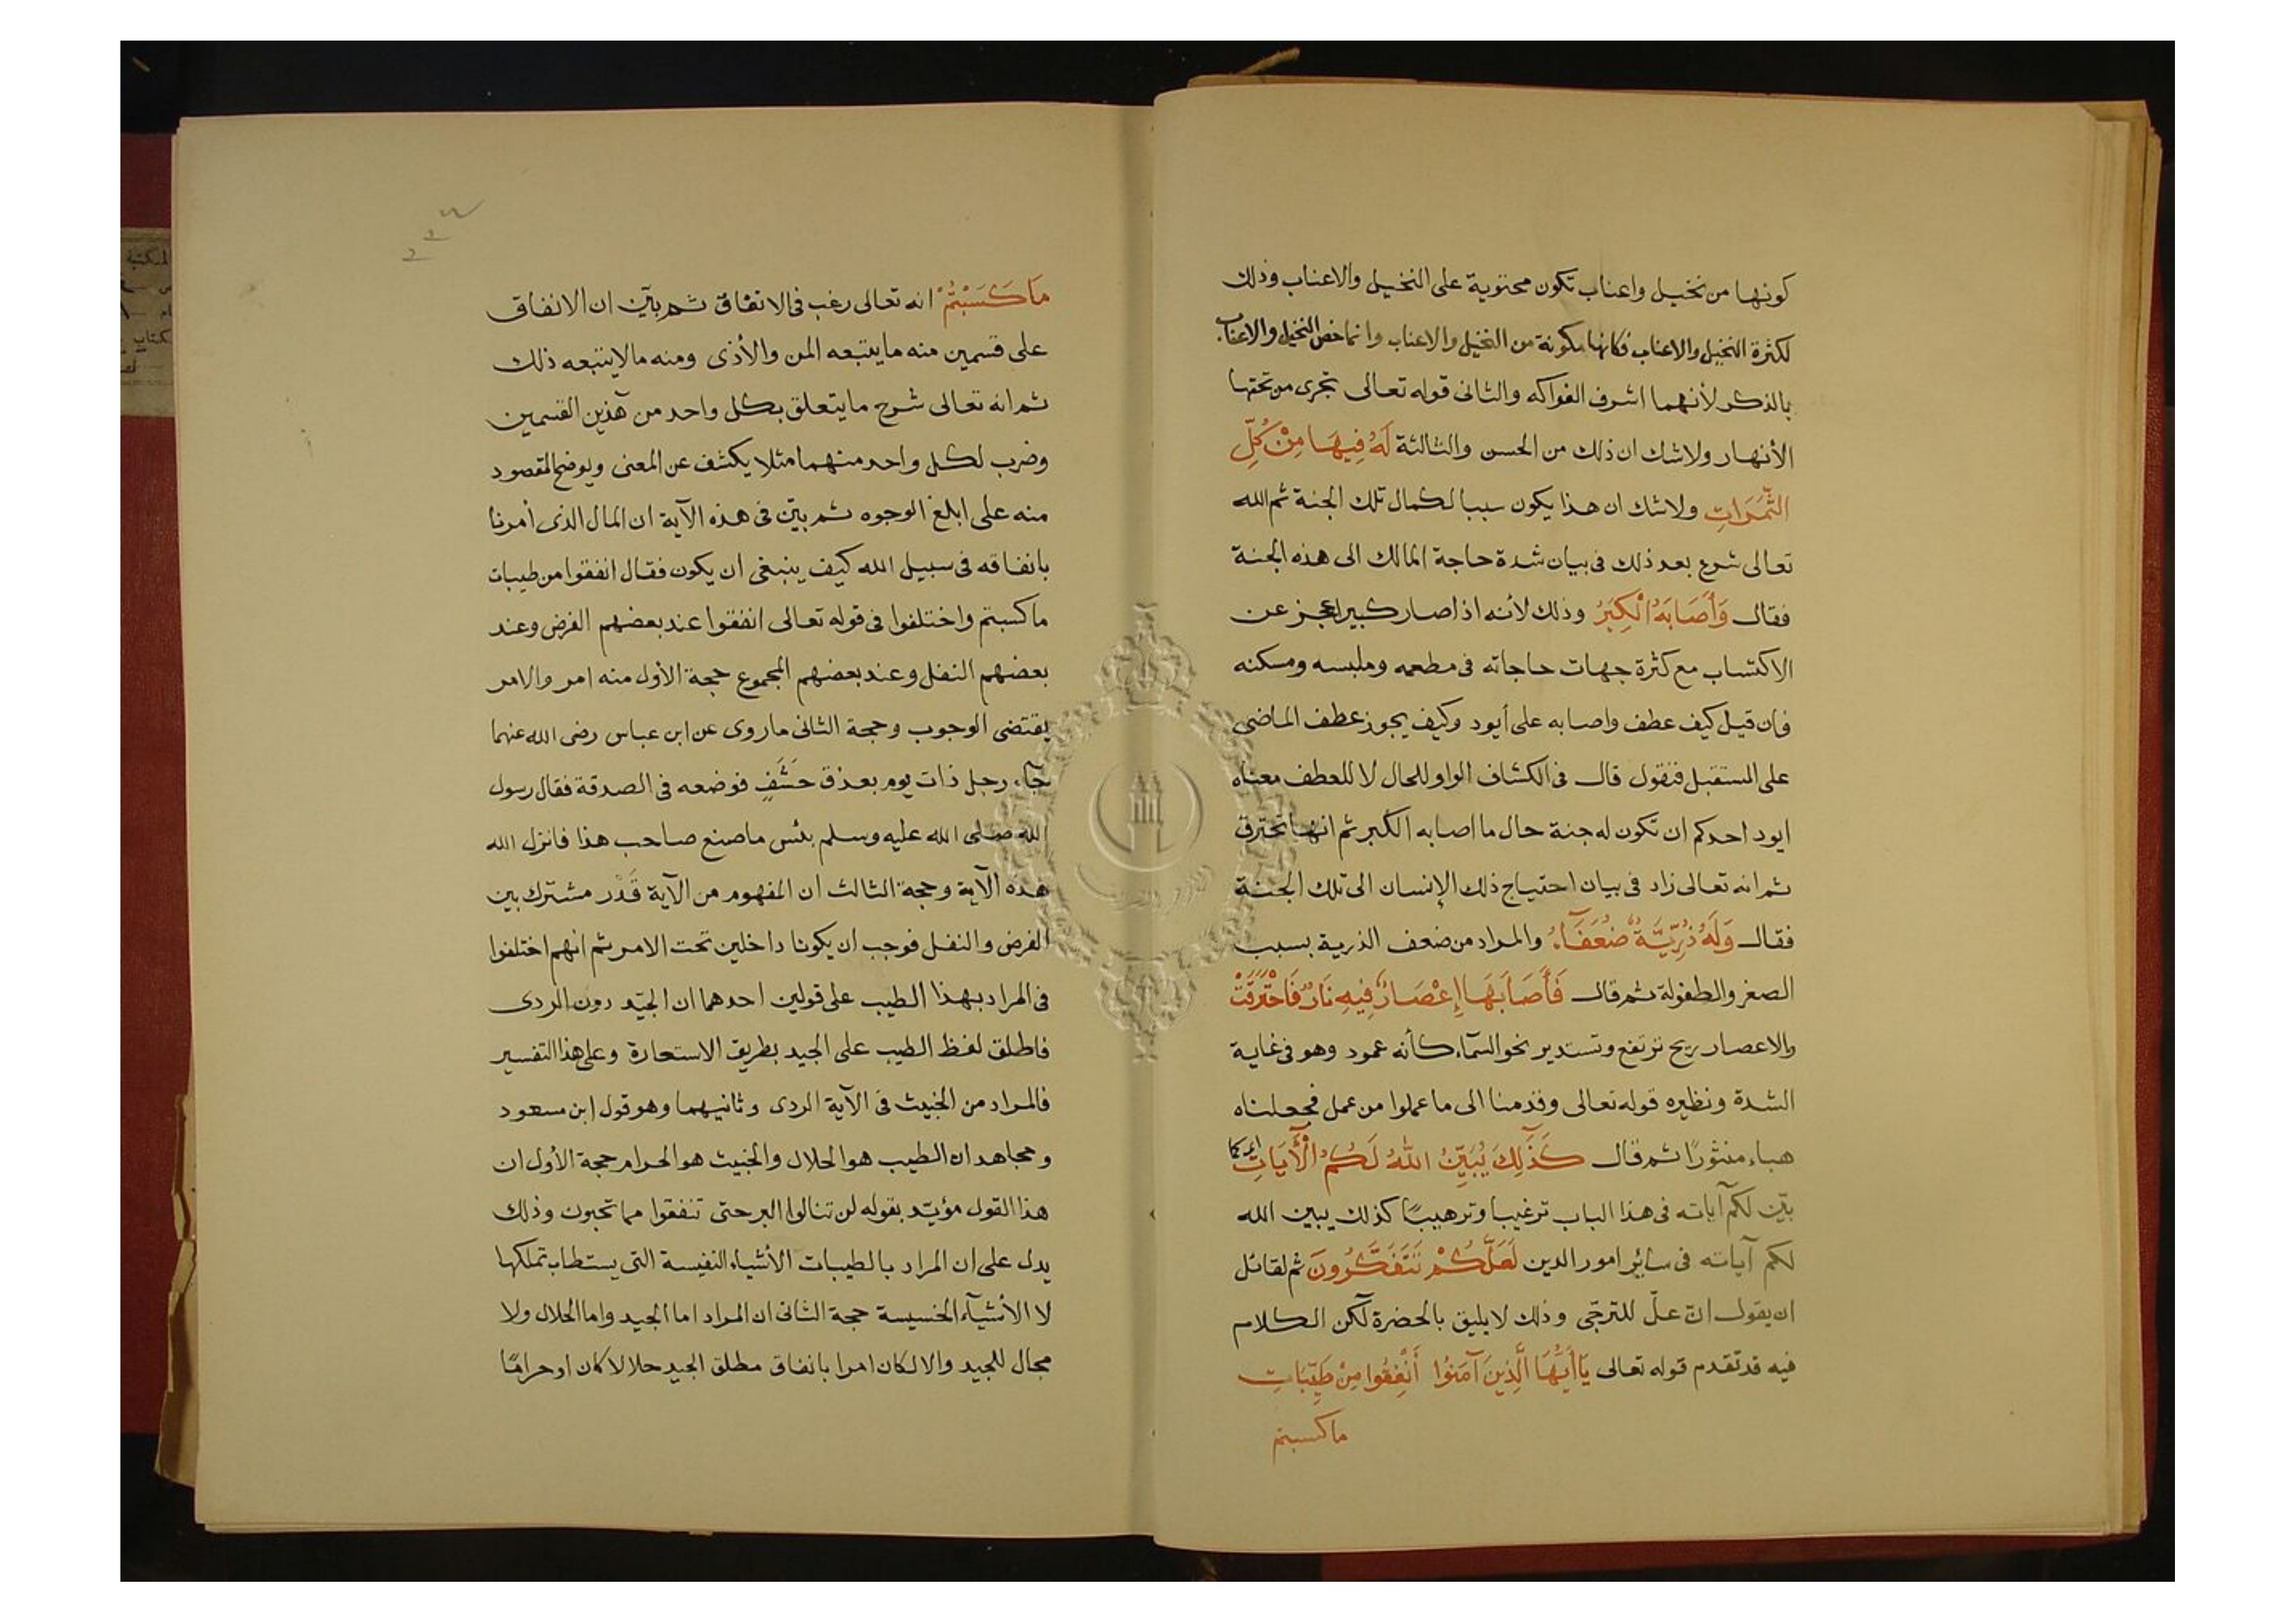 كونها من نخيل واعناب تكون محتوية على النخيل والاعناب وذلك
لكثرة النخيل والاعناب فكانها مكونة من النخيل والاعناب وانما خص النخيل والاعناب
بالذكر لأنهما اشرف الفواكه والثانى قوله تعالى تجرى من تحتها
الأنهار ولاشك ان ذلك من الحسن والثالثة لَهُ فِيهَا مِنْ كُلِّ
الثَّمَرَاتِ ولاشك ان هذا يكون سببا لكمال تلك الجنة ثم الله
تعالى شرع بعد ذلك فى بيان شدة حاجة المالك الى هذه الجنة
فقال وَأَصَابَهُ الْكِبَرُ وذلك لأنه اذا صار كبيرا عجز عن
الاكتساب مع كثرة جهات حاجاته فى مطعمه وملبسه ومسكنه
فان قيل كيف عطف واصابه على أيود وكيف يجوز عطف الماضى
على المستقبل فنقول قال فى الكشاف الواو للحال لا للعطف معناه
ايود احدكم ان تكون له جنة حال ما اصابه الكبر ثم انها تحترق
ثم انه تعالى زاد فى بيان احتياج ذلك الإنسان الى تلك الجنة
فقال وَلَهُ ذُرِّيَّةٌ ضُعَفَآءُ والمراد من ضعف الذرية بسبب
الصغر والطفولة ثم قال فَأَصَابَهَا إِعْصَارٌ فِيهِ نَارٌ فَاحْتَرَقَتْ
والاعصار ريح ترتفع وتستدير نحو السمآء كأنه عمود وهو فى غاية
الشدة ونظيره قوله تعالى وقدمنا الى ما عملوا من عمل فجعلناه
هباء منثورًا ثم قال كَذَلِكَ يُبَيِّنُ اللهُ لَكُمُ الْأَيَاتِ اى كما
بيّن لكم آياته فى هذا الباب ترغيبا وترهيبًا كذلك يبين الله
لكم آياته فى سائر امور الدين لَعَلَّكُمْ تَتَفَكَّرُونَ ثم لقائل
ان يقول انّ علّ للترجّى وذلك لا يليق بالحضرة لكن الكلام
فيه قد تقدم قوله تعالى يَاأَيُّهَا الَّذِينَ آمَنُوا أَنْفِقُوا مِنْ طَيِّبَاتِ
ما كسبتم
مَا كَسَبْتُمْ انه تعالى رغب فى الانفاق ثم بيّن ان الانفاق
على قسمين منه ما يتبعه المن والأذى ومنه ما لا يتبعه ذلك
ثم انه تعالى شرح ما يتعلق بكل واحد من هذين القسمين
وضرب لكل واحد منهما مثلا يكشف عن المعنى ويوضح المقصود
منه على ابلغ الوجوه ثم بيّن فى هذه الآية ان المال الذى أمرنا
بانفاقه فى سبيل الله كيف ينبغى ان يكون فقال انفقوا من طيبات
ما كسبتم واختلفوا فى قوله تعالى انفقوا عند بعضهم الفرض وعند
بعضهم النفل وعند بعضهم المجموع حجة الأول منه امر والامر
يقتضى الوجوب وحجة الثانى ما روى عن ابن عباس رضى الله عنهما
جآء رجل ذات يوم بعذق حَشَفٍ فوضعه فى الصدقة فقال رسول
الله صلى الله عليه وسلم بئس ما صنع صاحب هذا فانزل الله
هذه الآية وحجة الثالث ان المفهوم من الآية قَدْر مشترك بين
الفرض والنفل فوجب ان يكونا داخلين تحت الامر ثم انهم اختلفوا
فى المراد بهذا الطيب على قولين احدهما ان الجيّد دون الردى
فاطلق لفظ الطيب على الجيد بطريق الاستعارة وعلى هذا التفسير
فالمراد من الخبيث فى الآية الردى وثانيهما وهو قول ابن مسعود
ومجاهد ان الطيب هو الحلال والخبيث هو الحرام حجة الأول ان
هذا القول مؤيّد بقوله لن تنالوا البر حتى تنفقوا مما تحبون وذلك
يدل على ان المراد بالطيبات الأشياء النفيسة التى يستطاب تملكها
لا الأشيآء الخسيسة حجة الثانى ان المراد اما الجيد واما الحلال ولا
مجال للجيد والا لكان امرا بانفاق مطلق الجيد حلالا كان او حرامًا